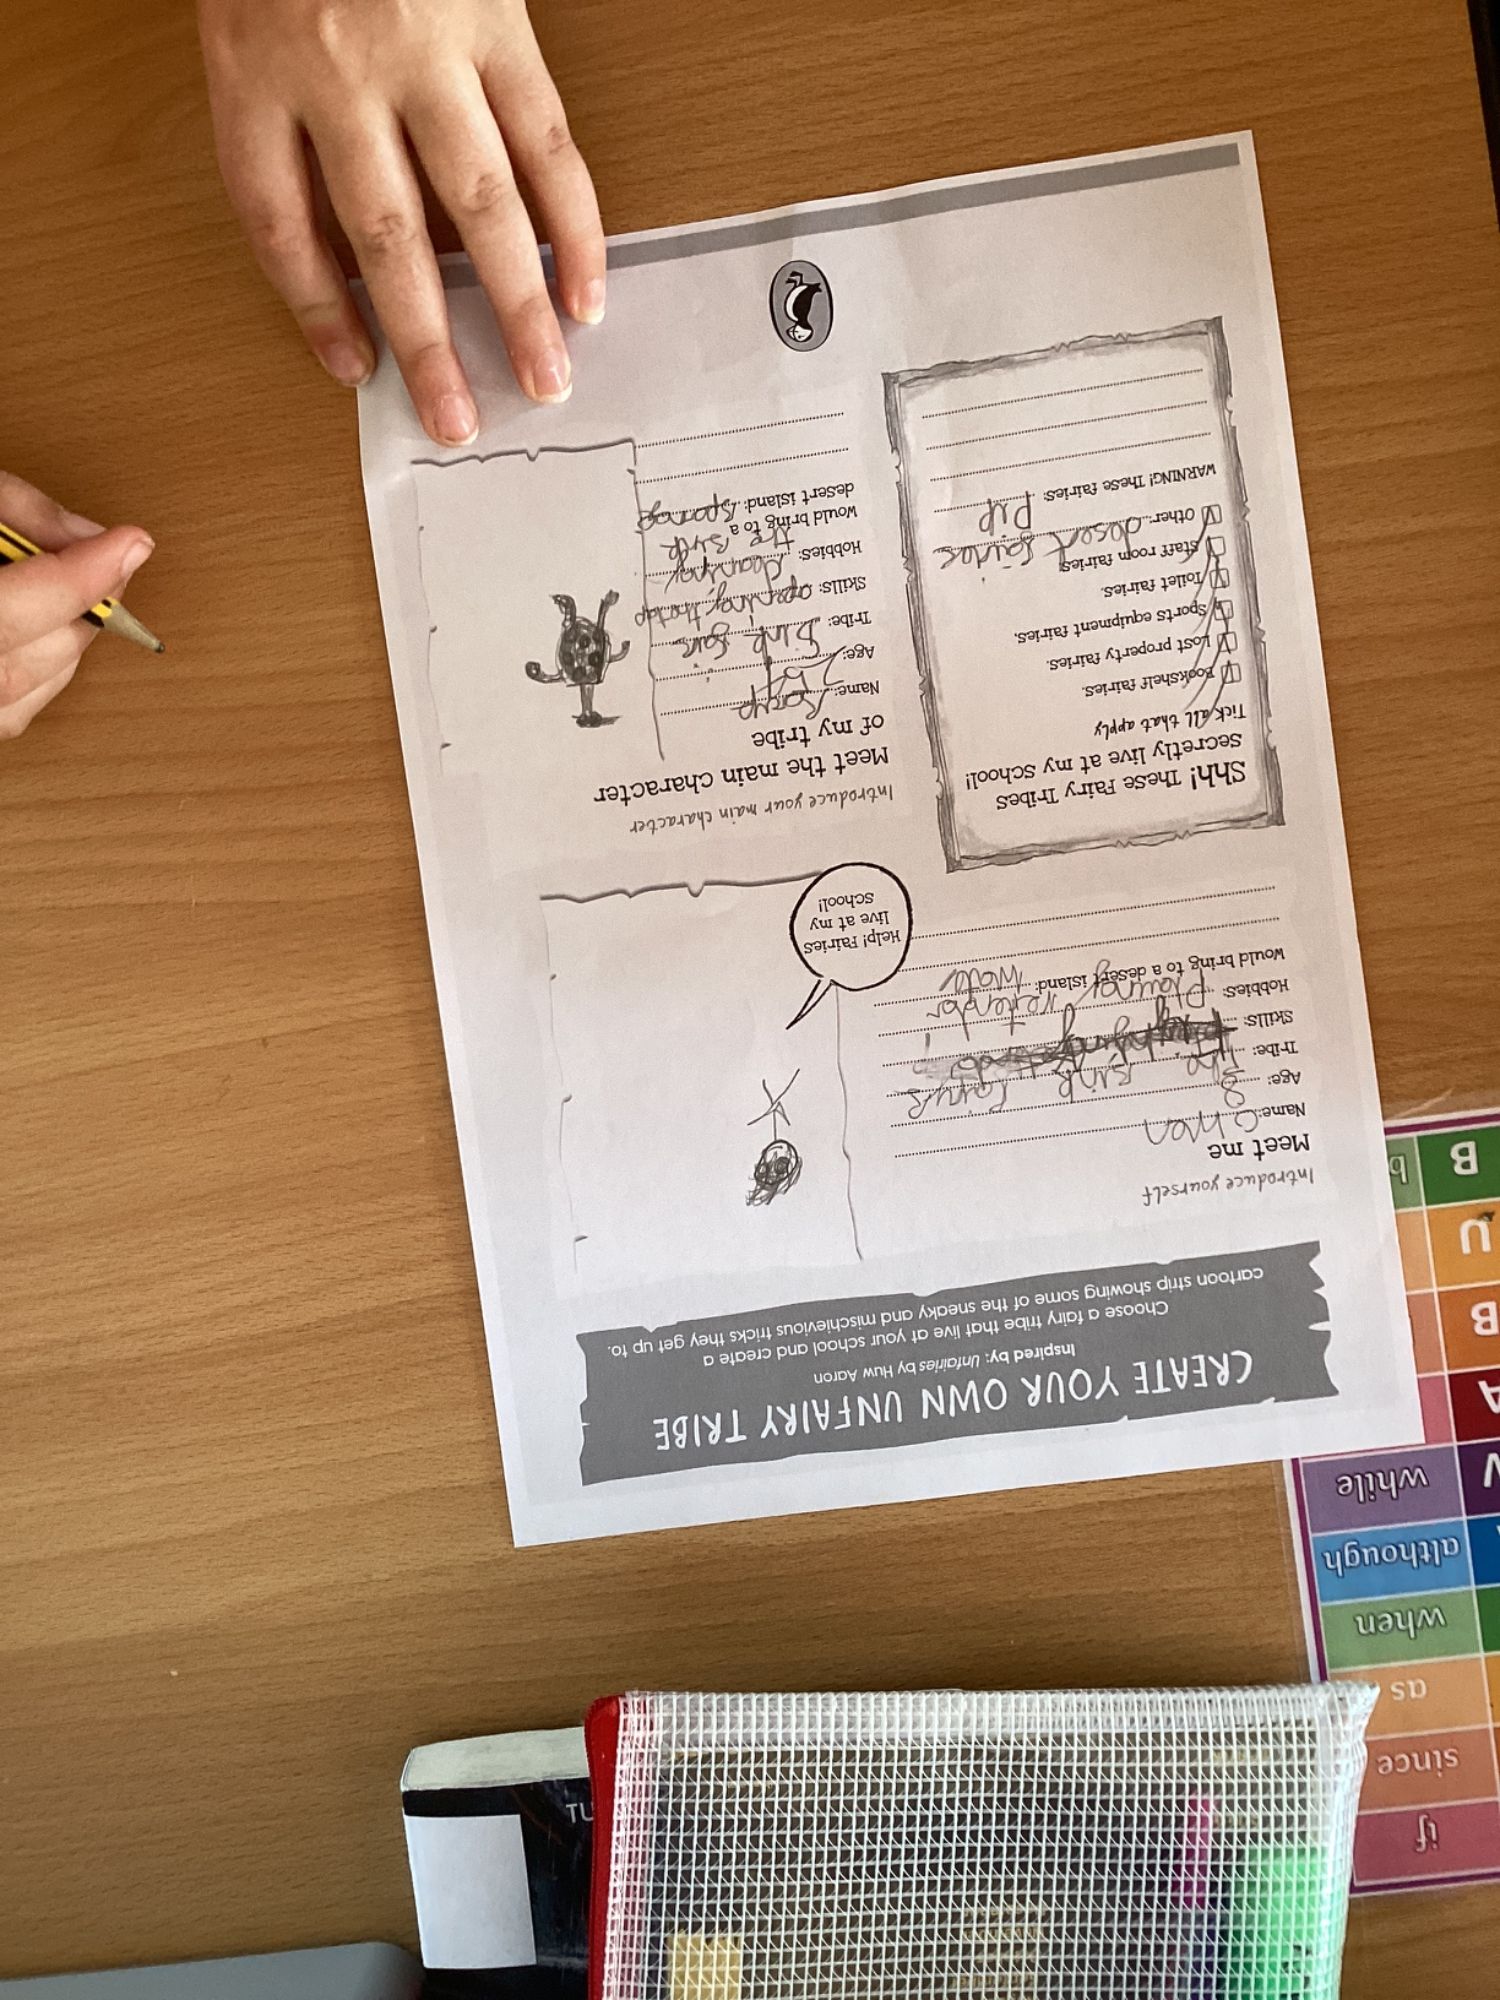 CREATE YOUR OWN UNFAIRY TRIBE
Inspired by: Unfairies by Huw Aaron
Choose a fairy tribe that live at your school and create a
cartoon strip showing some of the sneaky and mischievious tricks they get up to.
Introduce yourself
Meet me
Name:
Age: 8
Tribe: the sink
Skills:
Hobbies: Playing
Would bring to a desert island: Water
Help! Fairies
live at my
school!
Shh! These Fairy Tribes
secretly live at my school!
Tick all that apply
Bookshelf fairies.
Lost property fairies.
Sports equipment fairies.
Toilet fairies.
Staff room fairies.
Other: desert fairies
WARNING! These fairies: PVP
Introduce your main character
Meet the main character
of my tribe
Name:
Age:
Tribe: Sink
Skills: opening the tap
Hobbies: cleaning
the sink
Would bring to a
desert island:
if
since
as
when
although
while
V
A
B
U
B
b